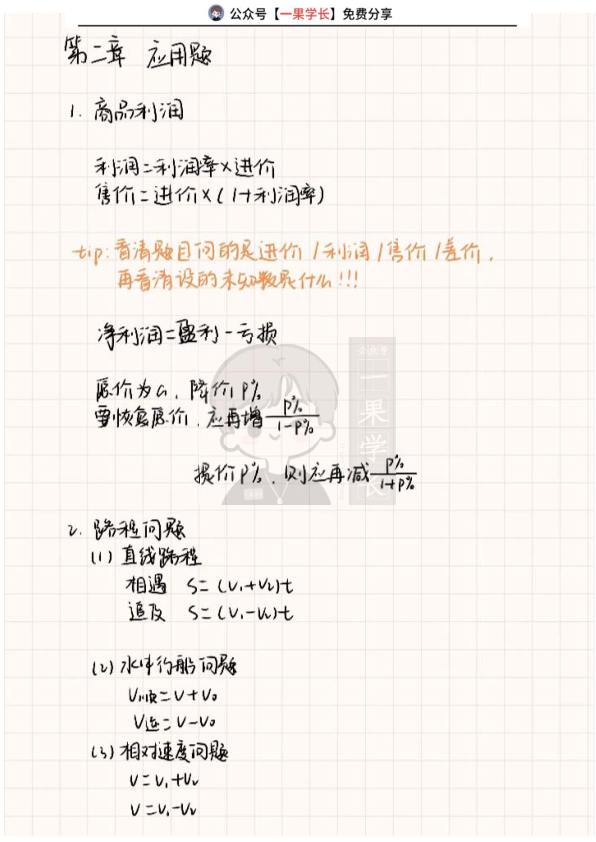 公众号【一果学长】免费分享
第二章 应用题
1. 商品利润
利润=利润率×进价
售价=进价×(1+利润率)
tip:看清题目问的是进价/利润/售价/差价,
再看清设的未知数是什么!!!
净利润=盈利-亏损
原价为a,降价P%
要恢复原价,应再增 P%/1-P%
提价P%,则应再减 P%/1+P%
2. 路程问题
(1) 直线路程
相遇 S=(V₁+V₂)t
追及 S=(V₁-V₂)t
(2) 水中行船问题
V顺=V+V₀
V逆=V-V₀
(3) 相对速度问题
V=V₁+V₂
V=V₁-V₂
公众号
一果学长